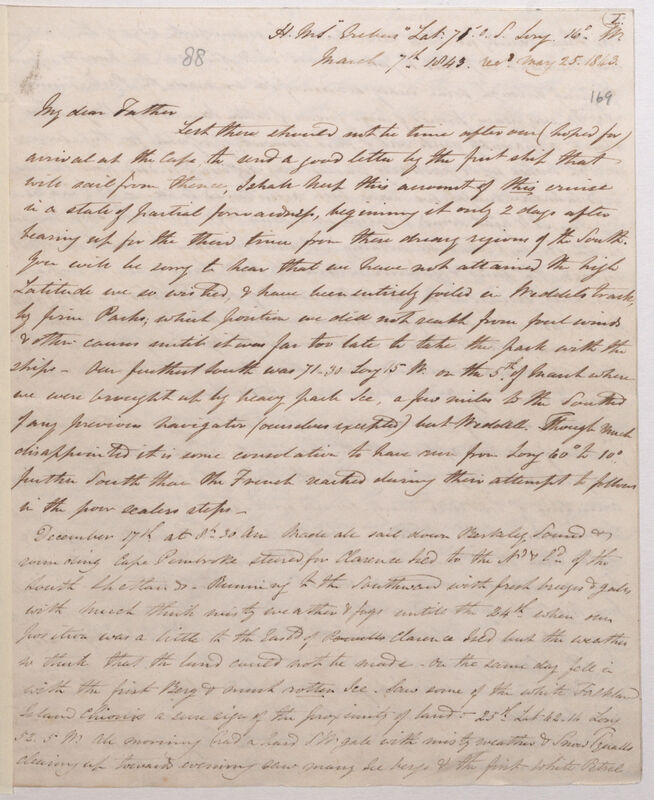 (1.
H.M.S. "Erebus" Lat: 71° 0. S. Long 16° W.
88
March 7th 1843. recd. May 25. 1843.
169
My dear Father
Lest there should not be time after our (hoped for)
arrival at the Cape, to send a good letter by the first ship that
will sail from thence, I shall keep this account of this cruise
in a state of partial forwardness, beginning it only 2 days after
bearing up for the third time from these dreary regions of the South.
You will be sorry to hear that we have not attained the high
Latitude we so wished, & have been entirely foiled in Weddels track,
by firm Packs; which position we did not reach from foul winds
& other causes untill it was far too late to take the pack with the
ships – Our furthest South was 71.30 Long 15 W. on the 5th of March where
we were brought up by heavy pack Ice, a few miles to the Southd
of any previous navigator (ourselves excepted) but Weddell. Though much
disappointed it is some consolation to have run from Long 60° to 10°
further South than the French reached during their attempt to follow
in the poor sealers steps –
December 17th at 8h.30 Am Made all sail down Berkley Sound &
rounding Cape Pembroke steered for Clarence Isld to the Nd & Ed of the
South Shetlands – Running to the Southward with fresh breezes & gales
with much thick misty weather & fogs untill the 24th when our
position was a little to the Eastd of Clarence Isld but the weather
so thick that the land could not be made – On the same day fell in
with the first Berg & much rotten Ice – Saw some of the white Falkland
Island Chionis a sure sign of the proximity of land – 25th Lat 62.16 Long
52.5 W. All morning had a hard SW gale with misty weather & Snow Squalls
clearing up towards evening saw many Ice bergs & the first White Petrel